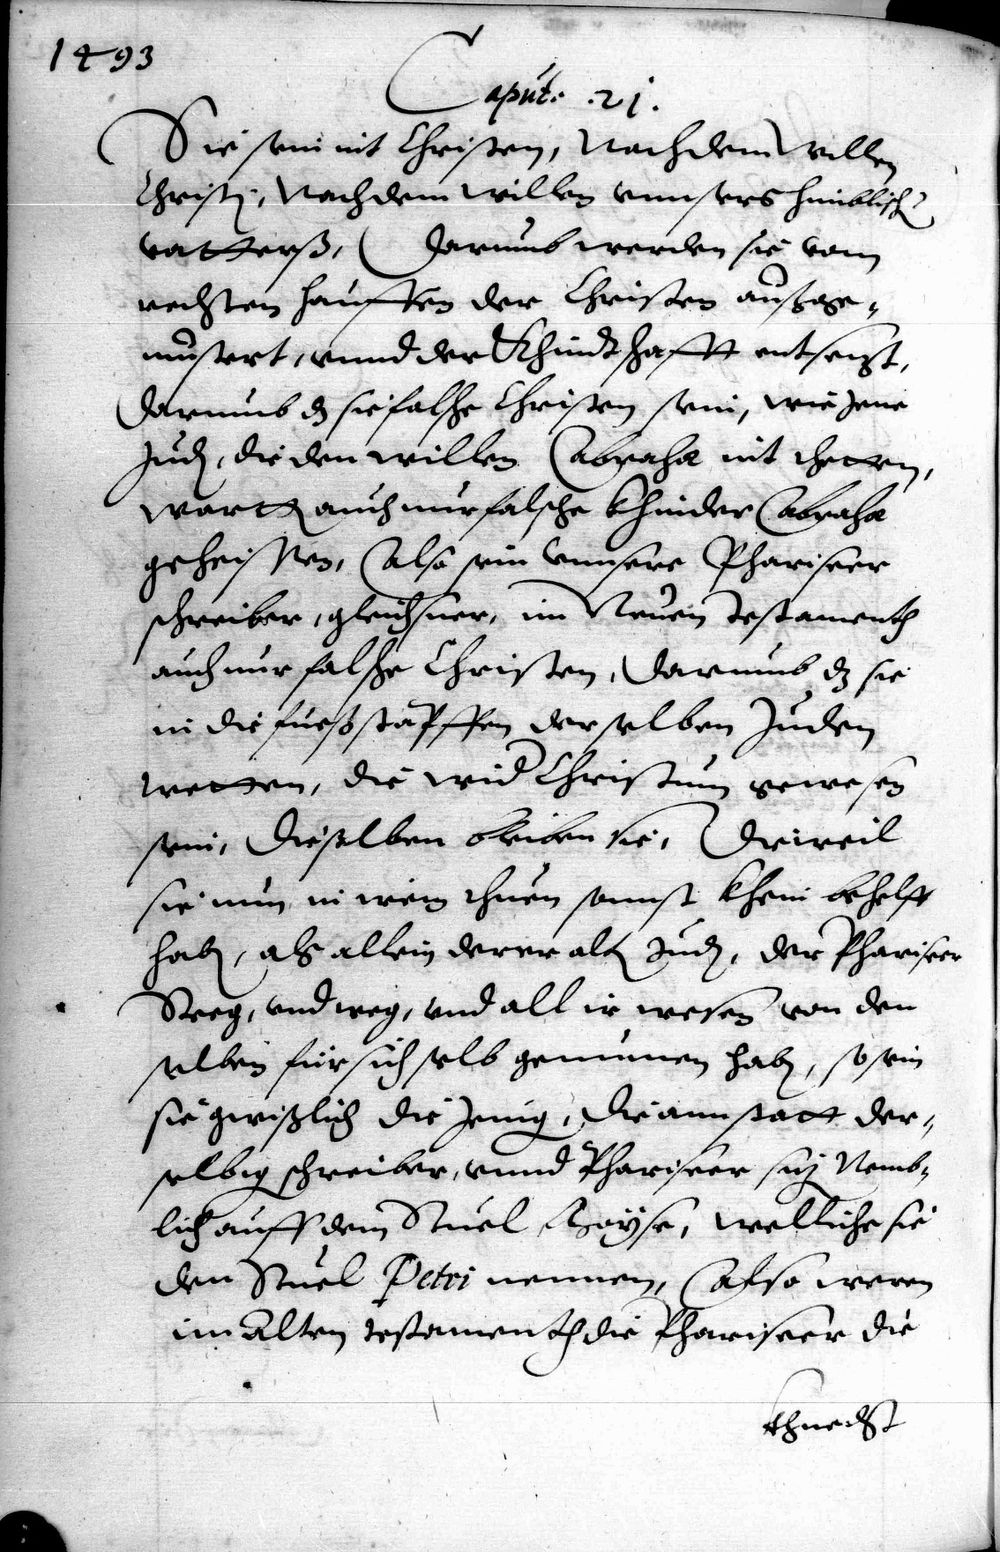 1493
Caput. 21.
Sie sein nit Christen, Nach dem willen
Christj, Nach dem willen vnnsers himblisch
vatterß, Darumb werden sie vom
rechten hauffen der Christen außge-
mustert, vnnd der Khindtschafft entsezt,
Darumb dz sie falsche Christen sein, wie jene
Judn, die den willen Abrahæ nit thetten,
wartn auch nur falsche Khinder Abrahæ
geheissen, Also sein vnnsere Phariseer
schreiber, gleichsner, im Neuen Testamenth
auch nur falsche Christen, Darumb dz sie
in die fueßstapffen derselben Juden
tretten, die wid Christum gewesen
sein, Dieselben bleiben sie, Dieweil
sie nun in irem thuen sonnst khein behelff
habn, als allein derer altn Judn, der Phariseer
Steeg, vnd weg, vnd all ir wesen von den
selben für sich selb genummen habn, so sein
sie gwißlich die jenig, die ann statt der-
selbig schreiber, vnnd Phariseer siz Nemb-
lich auff dem Stuel Moÿse, welliche sie
den Stuel Petri nennen, Also weren
im Alten testamenth die Phariseer die
Khnecht